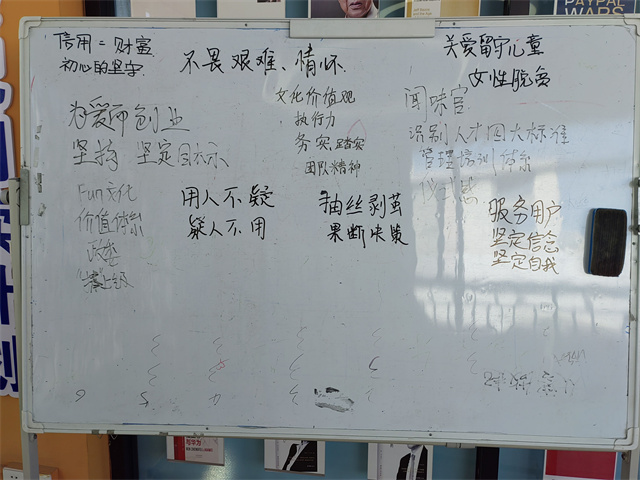 PAYPAL
WARS
信用=财富
初心的坚守
不畏艰难、情怀
关爱留守儿童
女性脱贫
文化价值观
执行力
务实踏实
团队精神
为爱而创业
坚持 坚定目标
闻味官
识别人才四大标准
管理培训体系
仪式感
Fun文化
价值体系
政委
用人不疑
疑人不用
抽丝剥茧
果断决策
服务用户
坚定信念
坚定自我
划